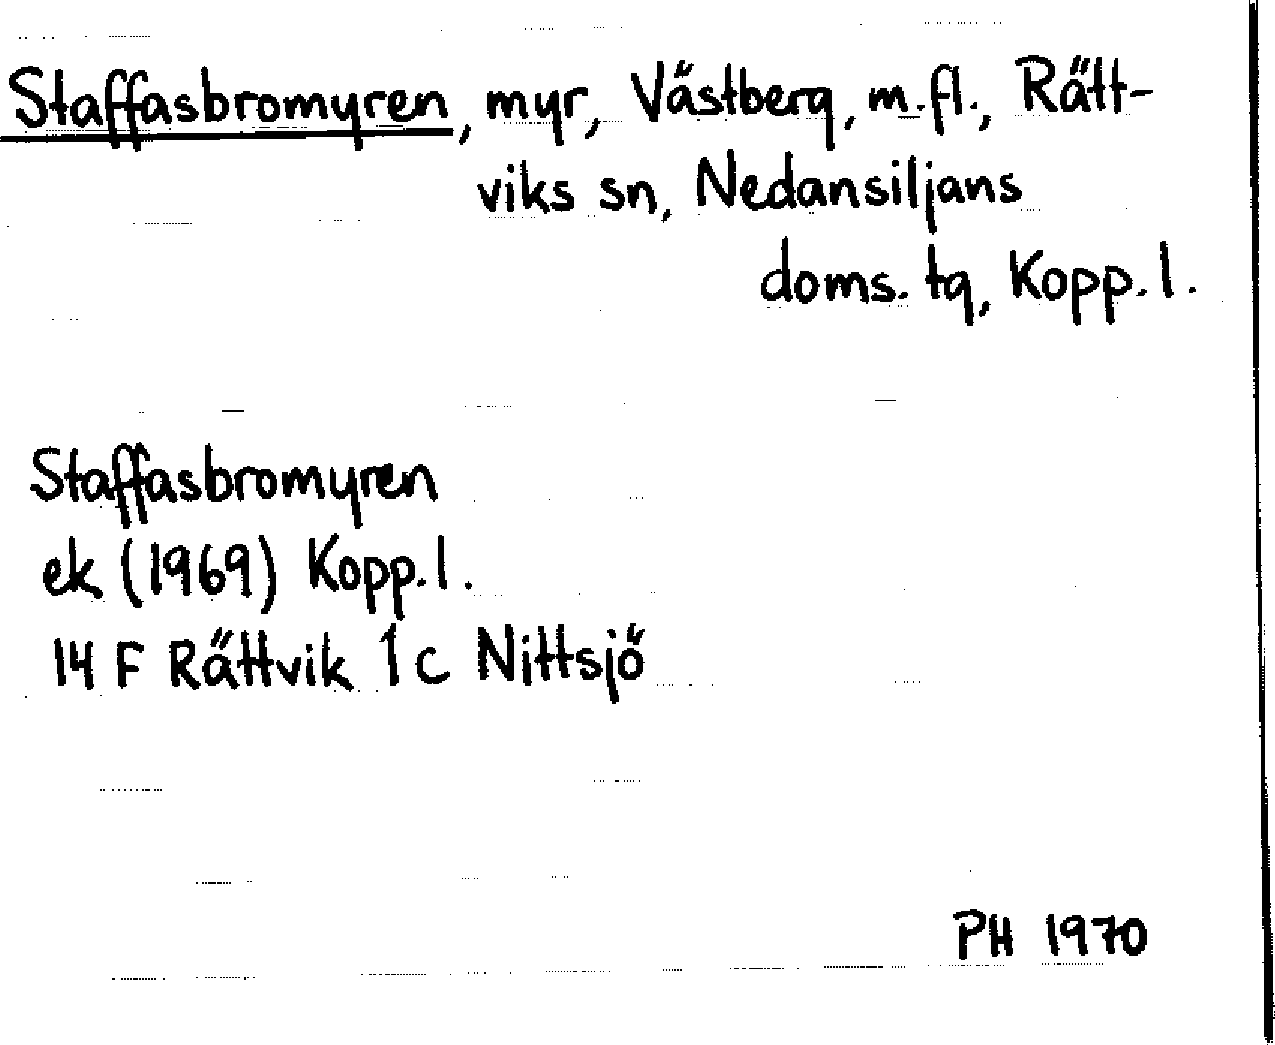 Staffasbromyren, myr, Västberg, m.fl., Rätt-
viks sn, Nedansiljans
doms. tg, Kopp. l.
Staffasbromyren
ek (1969) Kopp. l.
14 F Rättvik 1 c Nittsjö
PH 1970